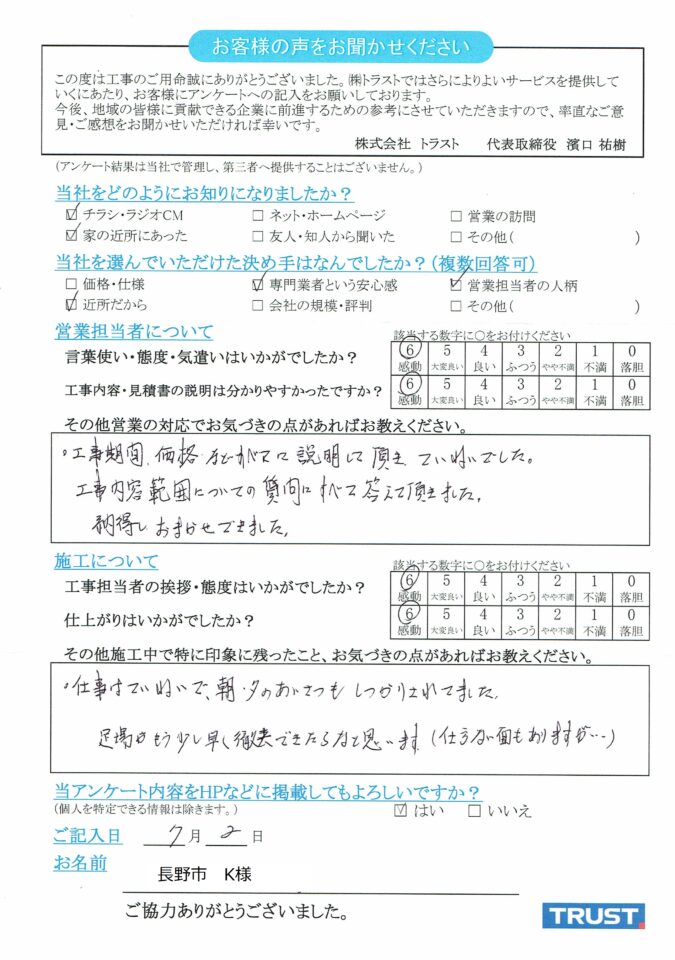 お客様の声をお聞かせください
この度は工事のご用命誠にありがとうございました。㈱トラストではさらによりよいサービスを提供して
いくにあたり、お客様にアンケートへの記入をお願いしております。
今後、地域の皆様に貢献できる企業に前進するための参考にさせていただきますので、率直なご意
見・ご感想をお聞かせいただければ幸いです。
株式会社 トラスト 代表取締役 濱口 祐樹
(アンケート結果は当社で管理し、第三者へ提供することはございません。)
当社をどのようにお知りになりましたか？
☑ チラシ・ラジオCM □ ネット・ホームページ □ 営業の訪問
☑ 家の近所にあった □ 友人・知人から聞いた □ その他( )
当社を選んでいただけた決め手はなんでしたか？(複数回答可)
□ 価格・仕様 ☑ 専門業者という安心感 ☑ 営業担当者の人柄
☑ 近所だから □ 会社の規模・評判 □ その他( )
営業担当者について 該当する数字に○をお付けください
言葉使い・態度・気遣いはいかがでしたか？ 6 5 4 3 2 1 0
感動 大変良い 良い ふつう やや不満 不満 落胆
工事内容・見積書の説明は分かりやすかったですか？ 6 5 4 3 2 1 0
感動 大変良い 良い ふつう やや不満 不満 落胆
その他営業の対応でお気づきの点があればお教えください。
・工事期間、価格などすべてに説明して頂き、ていねいでした。
工事内容範囲についての質問にすべて答えて頂きました。
納得しおまかせできました。
施工について 該当する数字に○をお付けください
工事担当者の挨拶・態度はいかがでしたか？ 6 5 4 3 2 1 0
感動 大変良い 良い ふつう やや不満 不満 落胆
仕上がりはいかがでしたか？ 6 5 4 3 2 1 0
感動 大変良い 良い ふつう やや不満 不満 落胆
その他施工中で特に印象に残ったこと、お気づきの点があればお教えください。
・仕事はていねいで、朝・夕のあいさつもしっかりされてました。
足場がもう少し早く撤去できたらなと思います(仕方ない面もありますが…)
当アンケート内容をHPなどに掲載してもよろしいですか？
(個人を特定できる情報は除きます。) ☑ はい □ いいえ
ご記入日 7月 2日
お名前 長野市 K様
ご協力ありがとうございました。
TRUST.